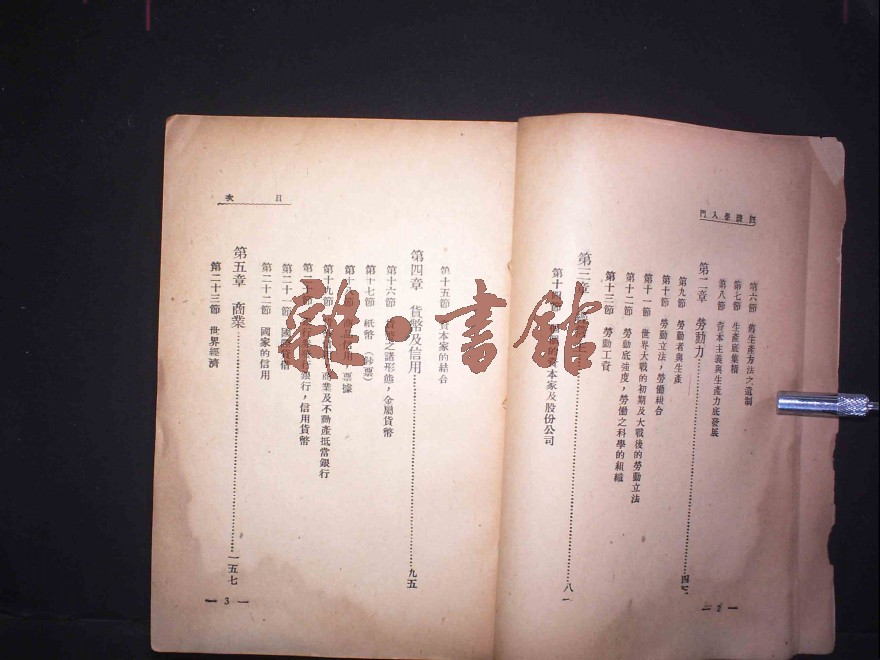 經濟學入門
第六節 舊生產方法之遺制
第七節 生產底集積
第八節 資本主義與生產力底發展
第二章 勞動力
第九節 勞動者與生產
第十節 勞動立法，勞働組合
第十一節 世界大戰的初期及大戰後的勞動立法
第十二節 勞動底強度，勞働之科學的組織
第十三節 勞動工資
第三章
八一
第十四節 的資本家及股份公司
— 2 —
目次
第十五節 資本家的結合
第四章 貨幣及信用
九五
第十六節 之諸形態，金屬貨幣
第十七節 紙幣 （鈔票）
票據
第十九節 商業及不動產抵當銀行
銀行，信用貨幣
第二十一節
第二十二節 國家的信用
第五章 商業
一五七
第二十三節 世界經濟
— 3 —
雜·書館